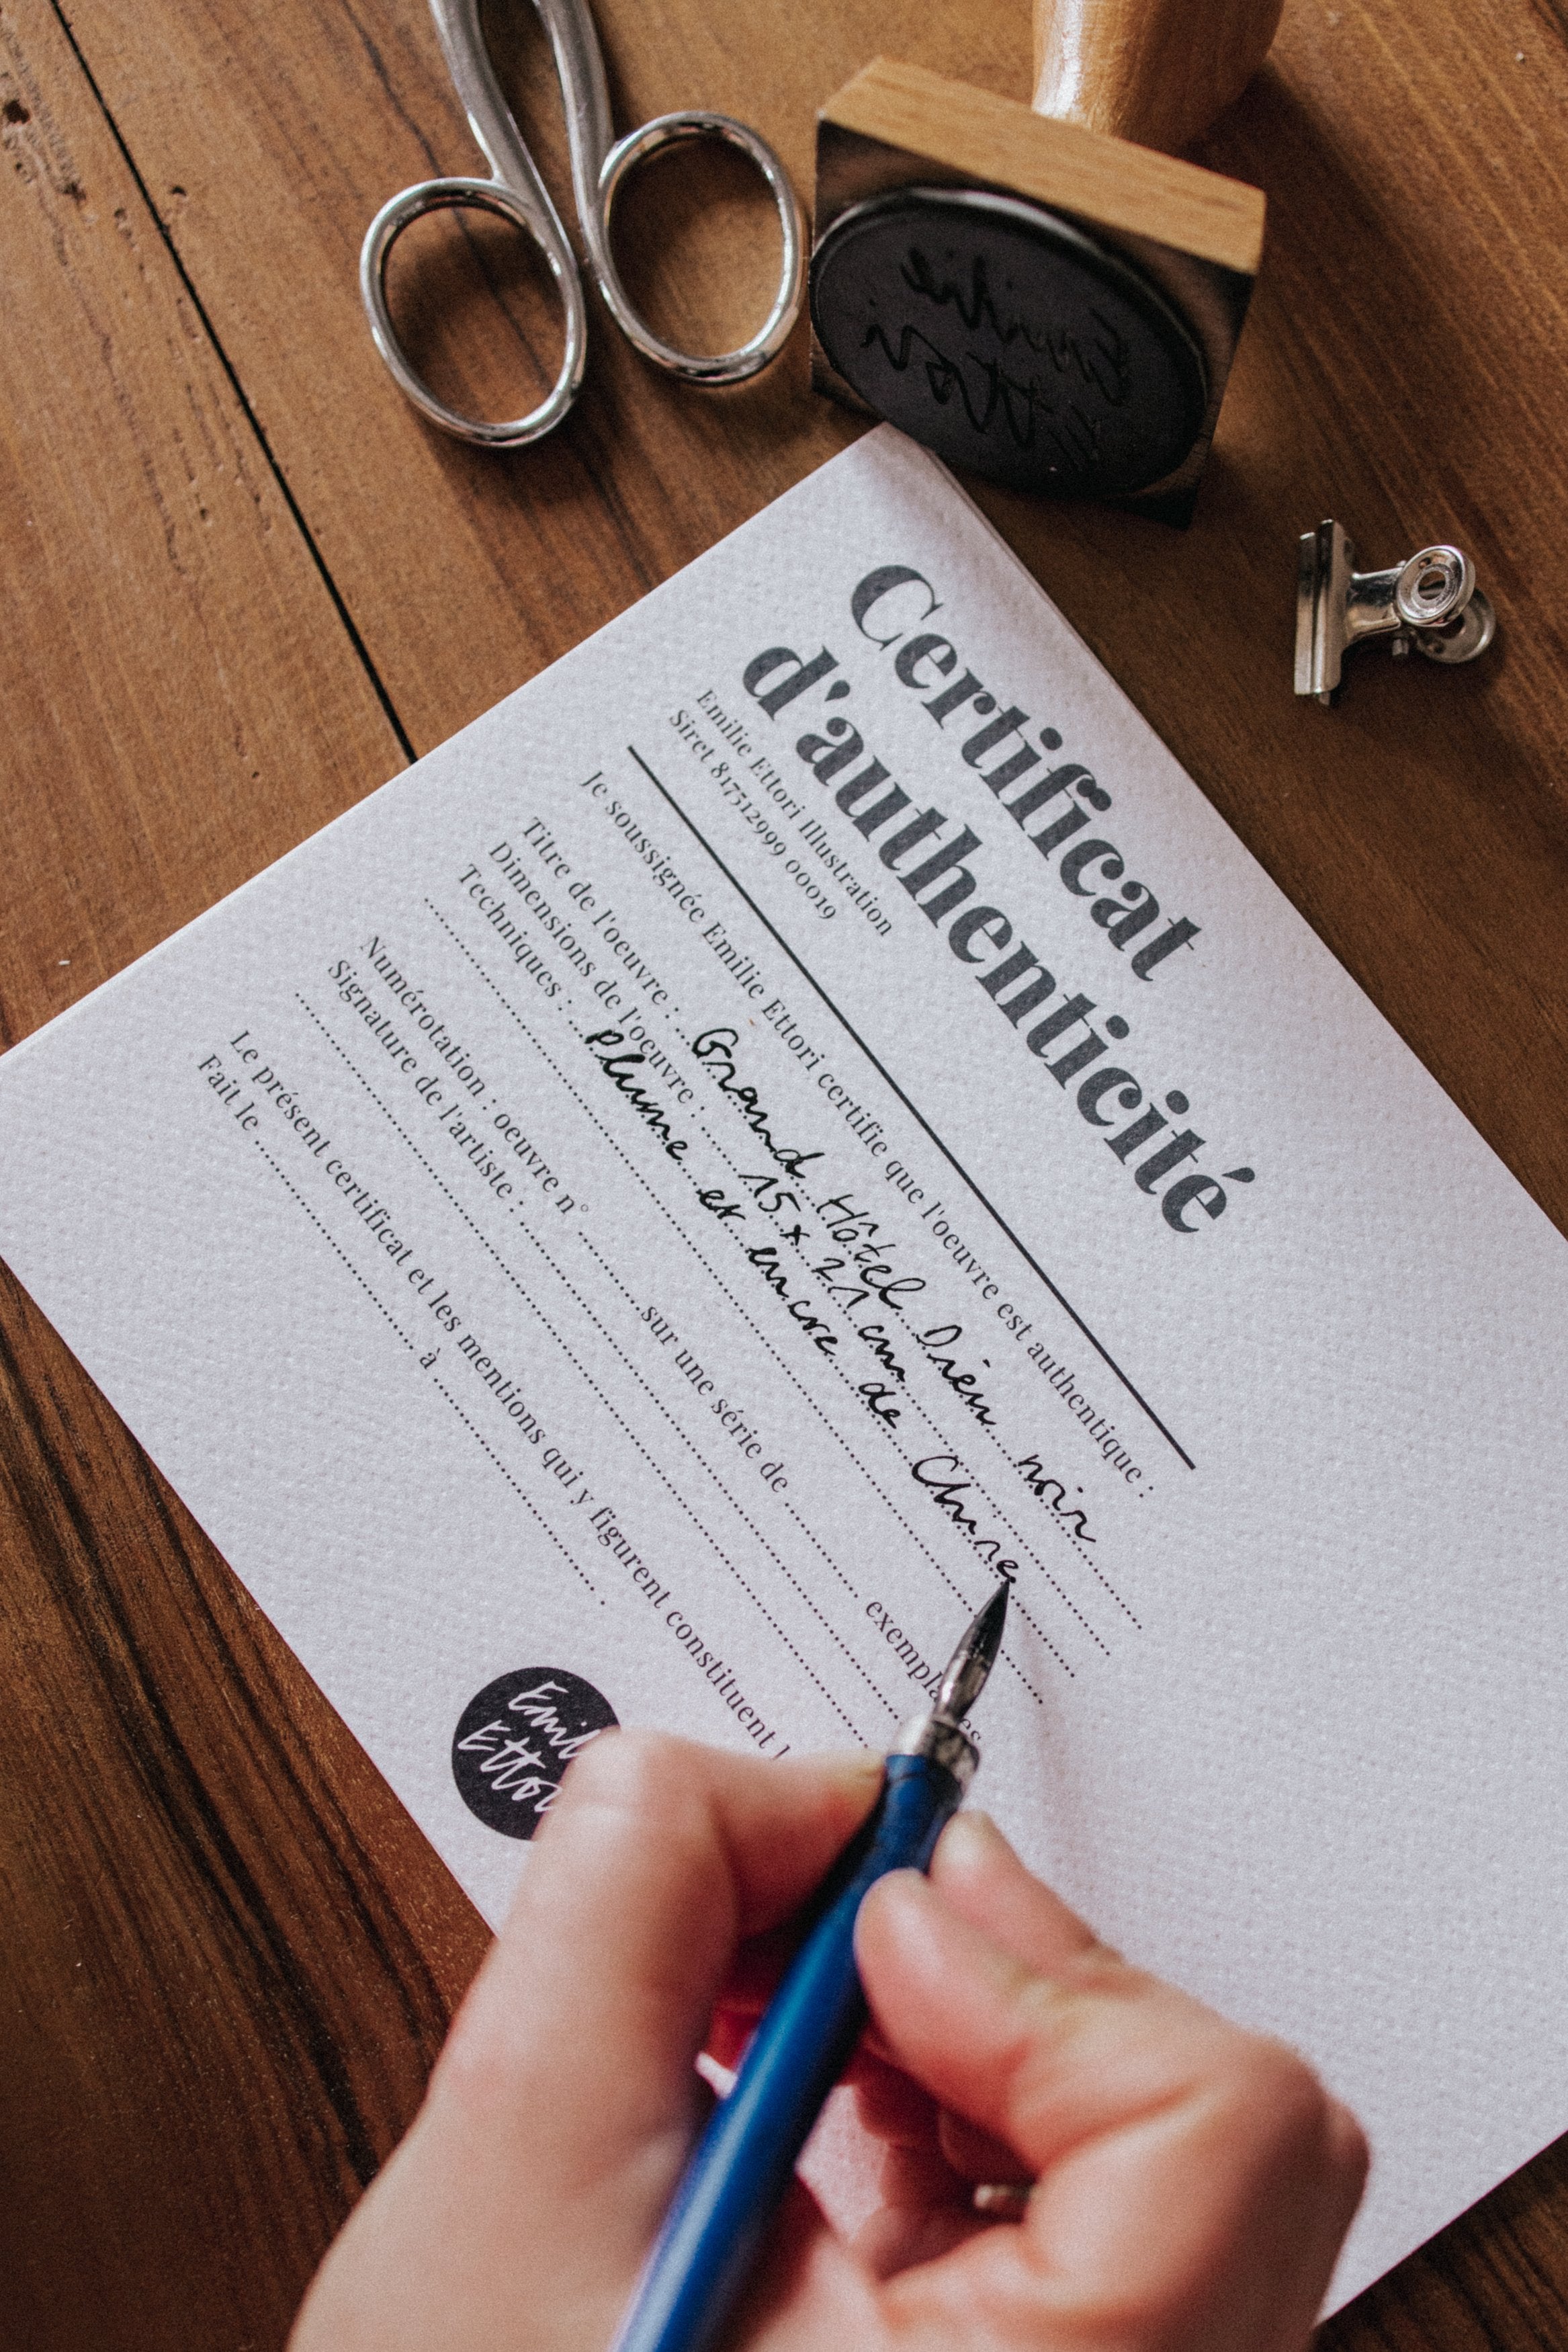 Emilie
Ettori
Certificat
d'authenticité
Emilie Ettori Illustration
Siret 817512999 00019
Je soussignée Emilie Ettori certifie que l'oeuvre est authentique :
Titre de l'oeuvre : Grand Hôtel Dieu noir
Dimensions de l'oeuvre : 15 x 21 cm
Techniques : plume et encre de Chine
Numérotation : oeuvre n° sur une série de
Signature de l'artiste :
Le présent certificat et les mentions qui y figurent constituent
Fait le à
Emil
Ettor